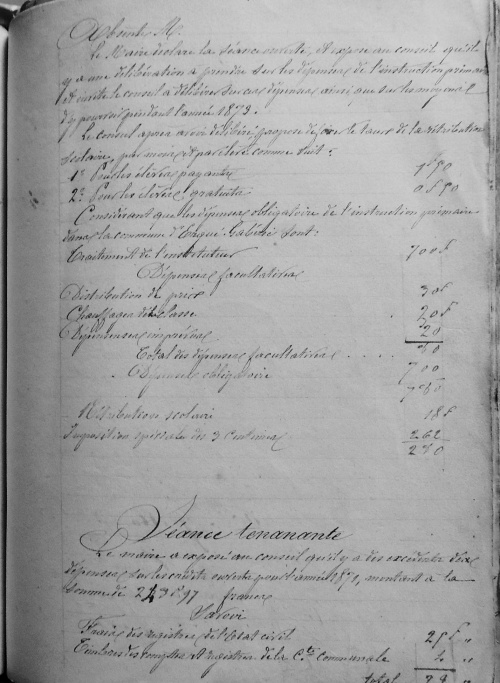 Absents M.
Le Maire déclare la séance ouverte, et expose au conseil qu'il
y a une délibération à prendre sur les dépenses de l'instruction primaire
et invite le conseil à délibérer sur ces dépenses ainsi que sur les moyens
d'y pourvoir pendant l'année 1873.
Le conseil après avoir délibéré propose de fixer le taux de la rétribution
scolaire, par mois et par élève comme suit:
1° Pour les élèves payants 1f50
2° Pour les élèves gratuits 0f50
Considérant que les dépenses obligatoire de l'instruction primaire
dans la commune d'
Traitement de l'instituteur 700f
Dépenses facultatives
Distribution de prix 30f
Chauffage de la classe
Dépenses imprévues 20
Total des dépenses facultatives
Dépenses obligatoire 700
Rétribution scolaire 18f
Imposition spéciale des 3 centimes 262
280
Séance tenanante
Le maire a exposé au conseil qu'il y a des excédents des
dépenses sur les crédits ouverts pour l'année 1871, montant à la
somme de francs
Savoir
Frais des registres de l'état civil 25f "
Timbres des comptes et registres de la Cte communale "
total "